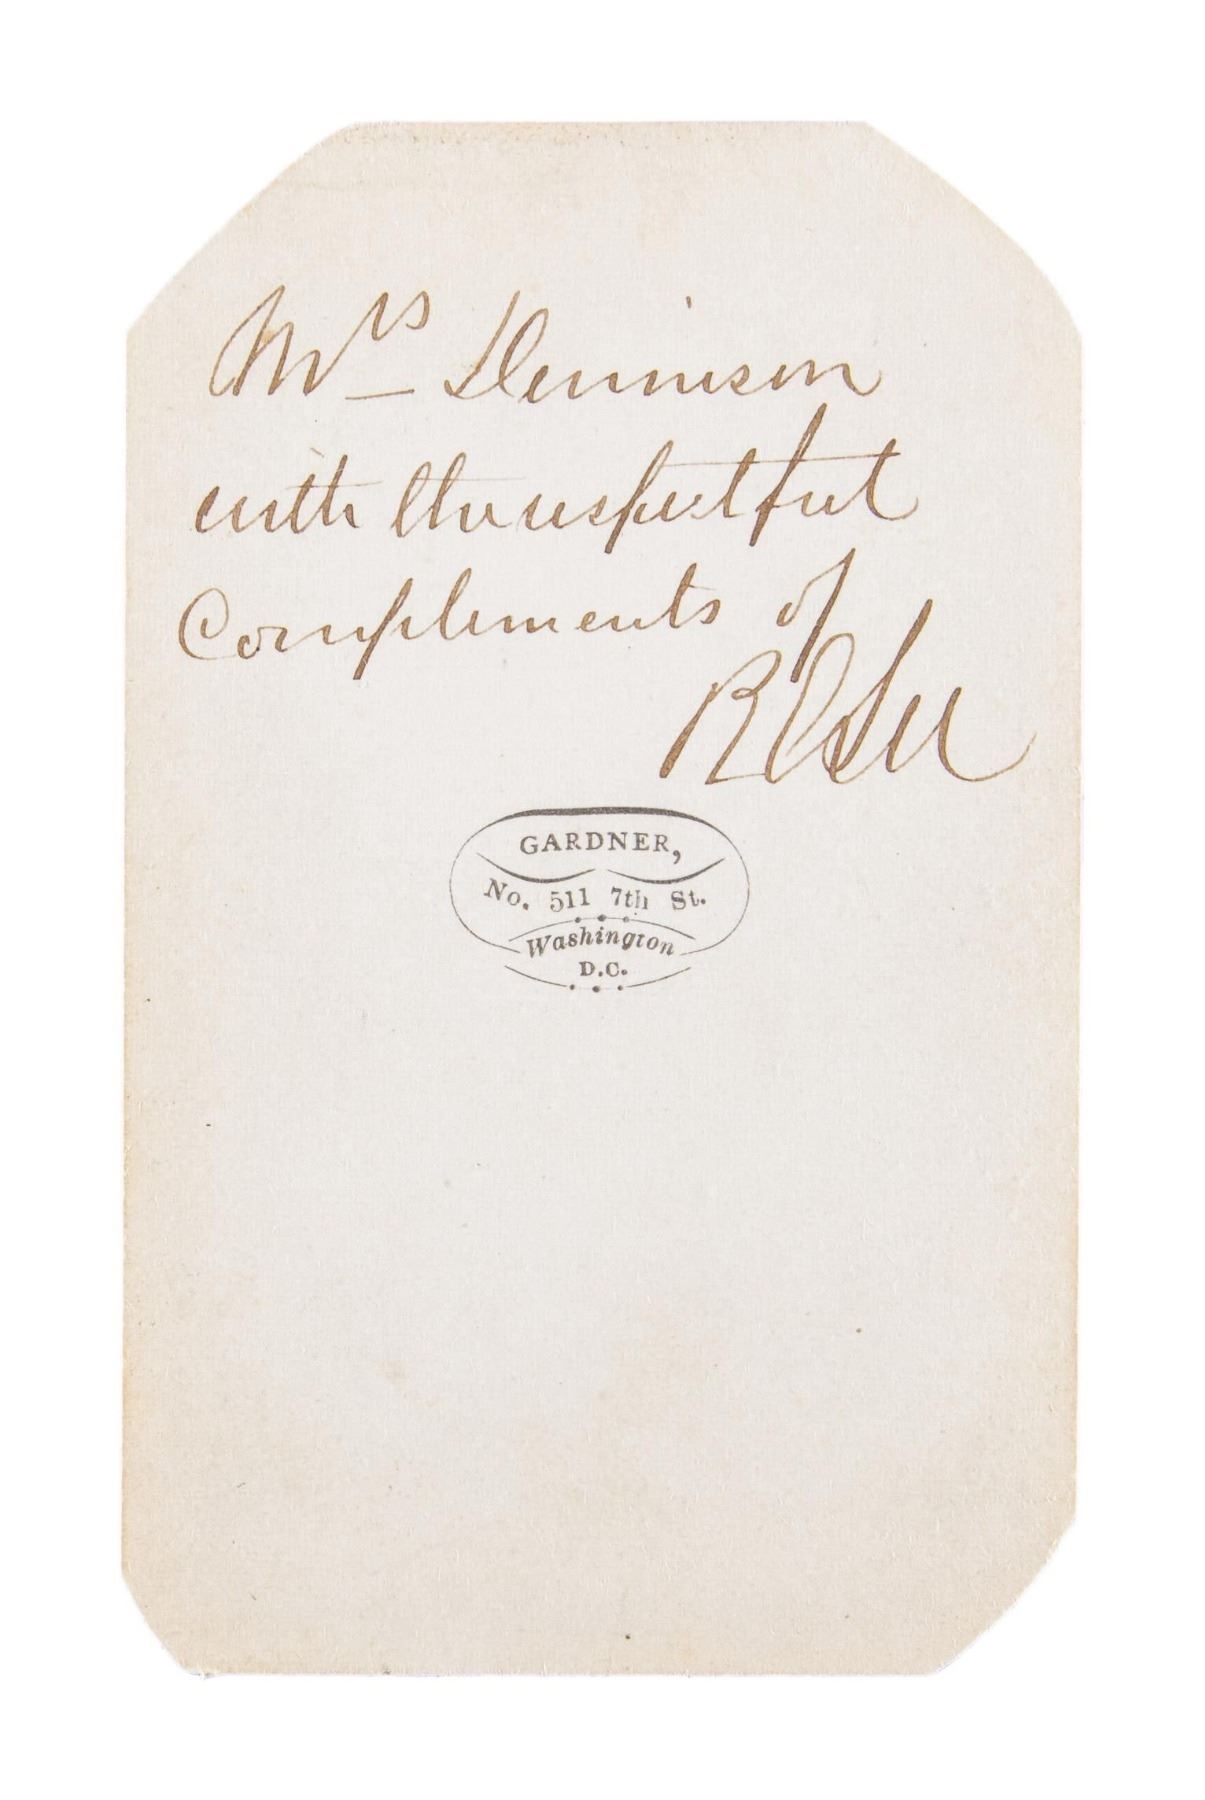 Mrs Dennison
with the respectful
Complements of
R E Lee
GARDNER,
No. 511 7th St.
Washington
D.C.